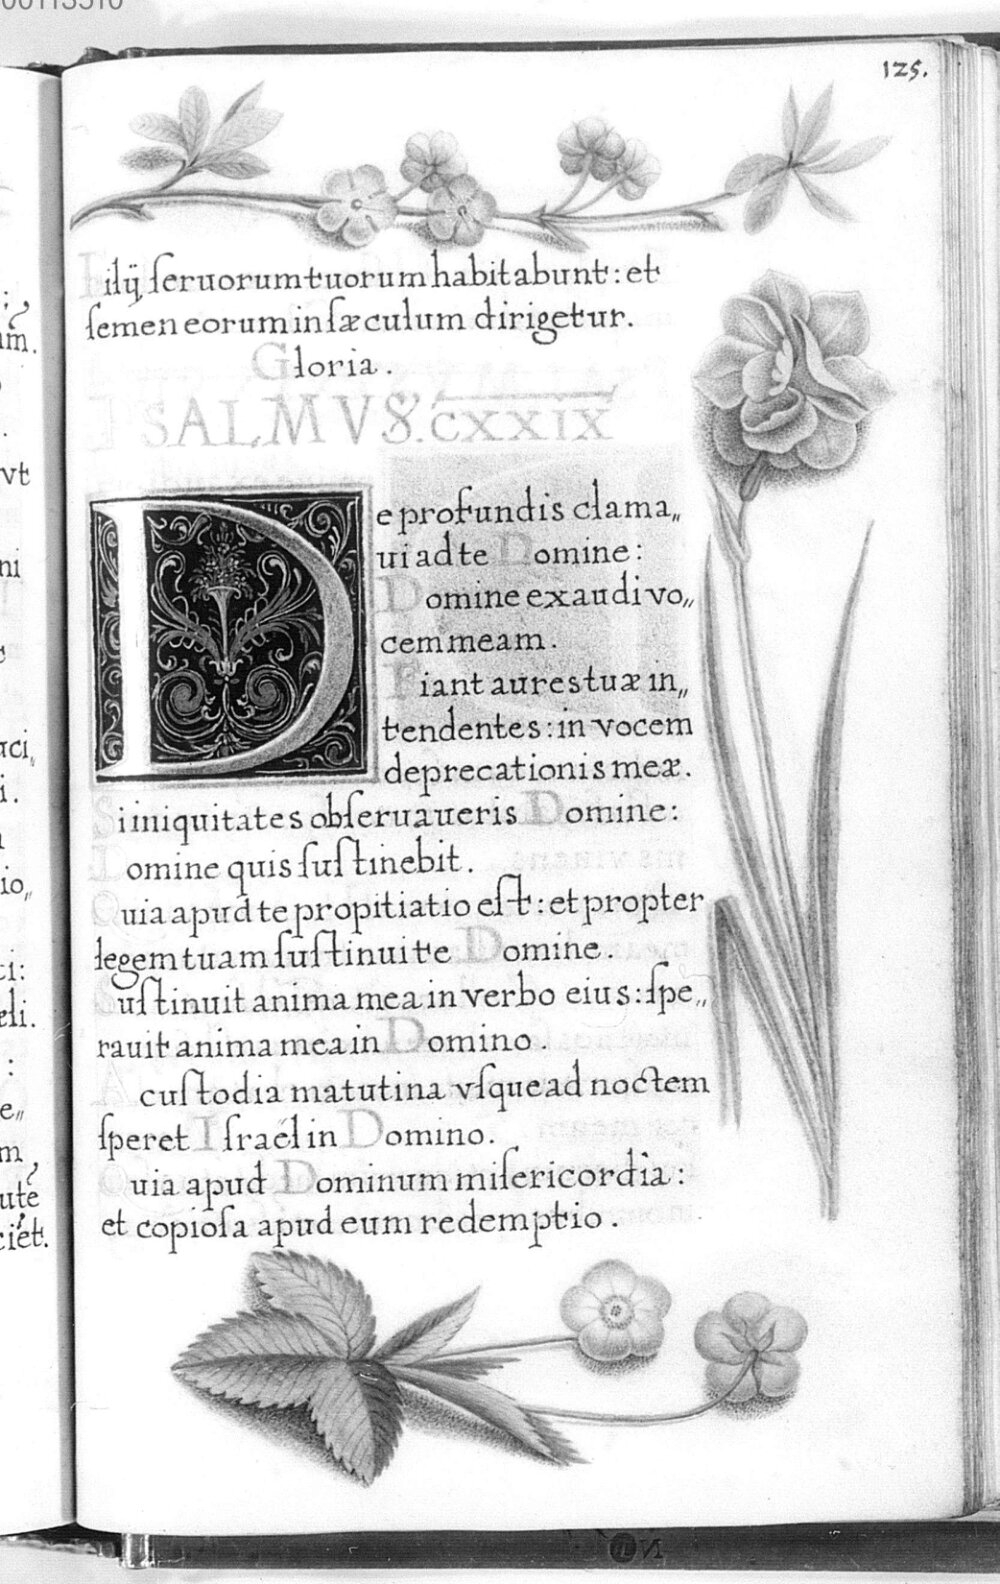 00113510
125.
Filij ſeruorum tuorum habitabunt: et
ſemen eorum in ſæculum dirigetur.
Gloria.
PSALMVS. CXXIX
De profundis clama„
ui ad te Domine:
Domine exaudi vo„
cem meam.
Fiant aures tuæ in„
tendentes: in vocem
deprecationis meæ.
Si iniquitates obſeruaueris Domine:
Domine quis ſuſtinebit.
Quia apud te propitiatio eſt: et propter
legem tuam ſuſtinui te Domine.
Suſtinuit anima mea in verbo eius: ſpe„
rauit anima mea in Domino.
A cuſtodia matutina vſque ad noctem
ſperet Iſraél in Domino.
Quia apud Dominum miſericordia:
et copioſa apud eum redemptio.